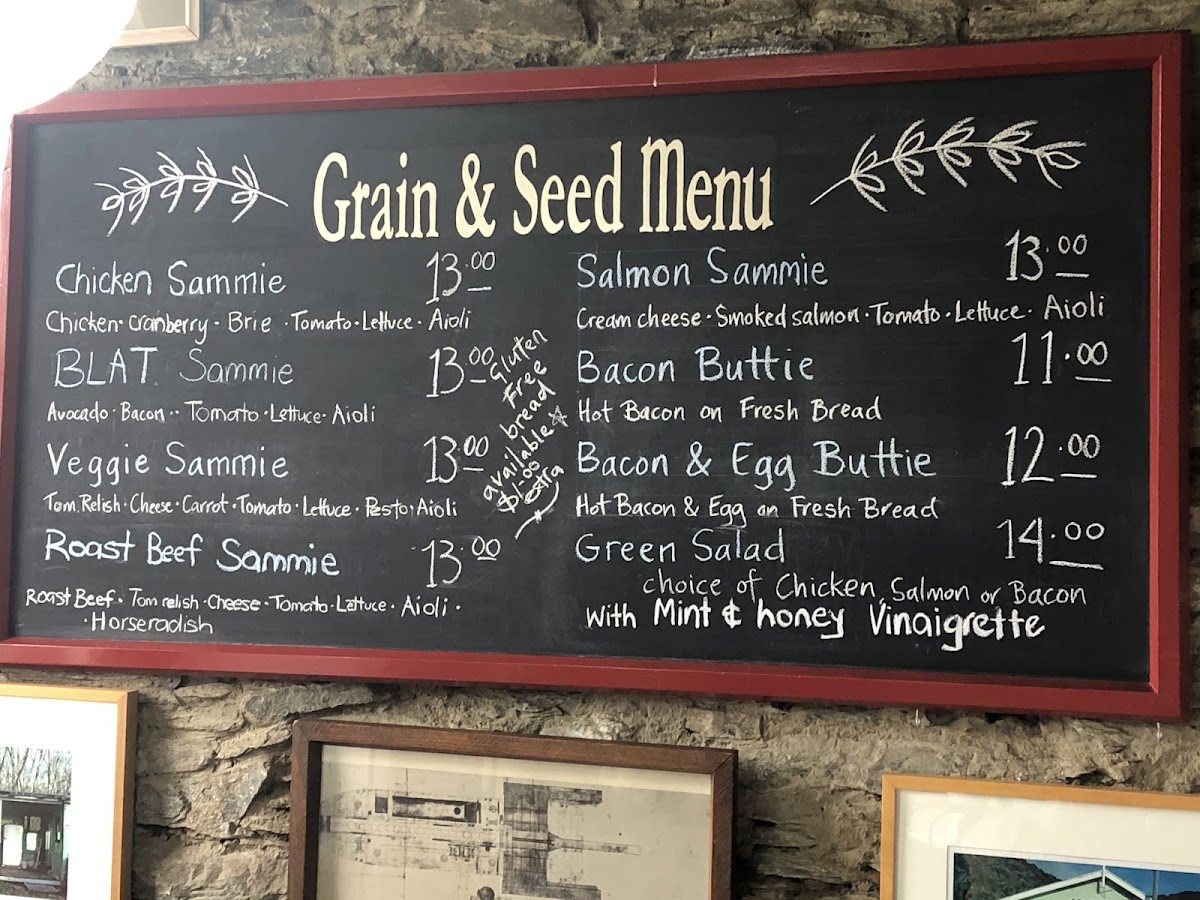 Grain & Seed Menu
Chicken Sammie 13.00
Chicken · Cranberry · Brie · Tomato · Lettuce · Aioli
BLAT. Sammie 13.00
Avocado · Bacon · · Tomato · Lettuce · Aioli
Veggie Sammie 13.00
Tom. Relish · Cheese · Carrot · Tomato · Lettuce · Pesto · Aioli
Roast Beef Sammie 13.00
Roast Beef · Tom relish · Cheese · Tomato · Lettuce · Aioli ·
· Horseradish
Gluten
Free
bread
available
$1.00
extra
Salmon Sammie 13.00
Cream cheese · Smoked salmon · Tomato · Lettuce · Aioli
Bacon Buttie 11.00
Hot Bacon on Fresh Bread
Bacon & Egg Buttie 12.00
Hot Bacon & Egg on Fresh Bread
Green Salad 14.00
choice of Chicken, Salmon or Bacon
With Mint & honey Vinaigrette